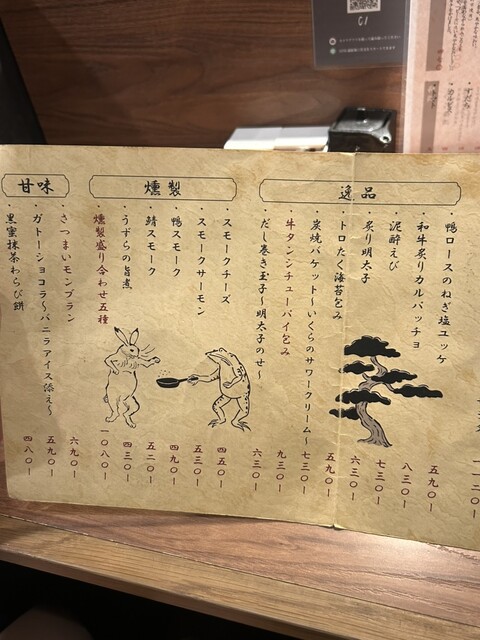 C1
逸品
一一二〇ー
・鴨ロースのねぎ塩ユッケ 五九〇ー
・和牛炙りカルパッチョ 八三〇ー
・泥酔えび 七三〇ー
・炙り明太子 六三〇ー
・トロたく海苔包み 五九〇ー
・炭焼バケット〜いくらのサワークリーム〜 七三〇ー
・牛タンシチューパイ包み 九三〇ー
・だし巻き玉子〜明太子のせ〜 六三〇ー
燻製
・スモークチーズ 四五〇ー
・スモークサーモン 五三〇ー
・鴨スモーク 四九〇ー
・鯖スモーク 五二〇ー
・うずらの旨煮 四三〇ー
・燻製盛り合わせ五種 一〇八〇ー
甘味
・さつまいモンブラン 六九〇ー
・ガトーショコラ〜バニラアイス添え〜 五九〇ー
・黒蜜抹茶わらび餅 四八〇ー